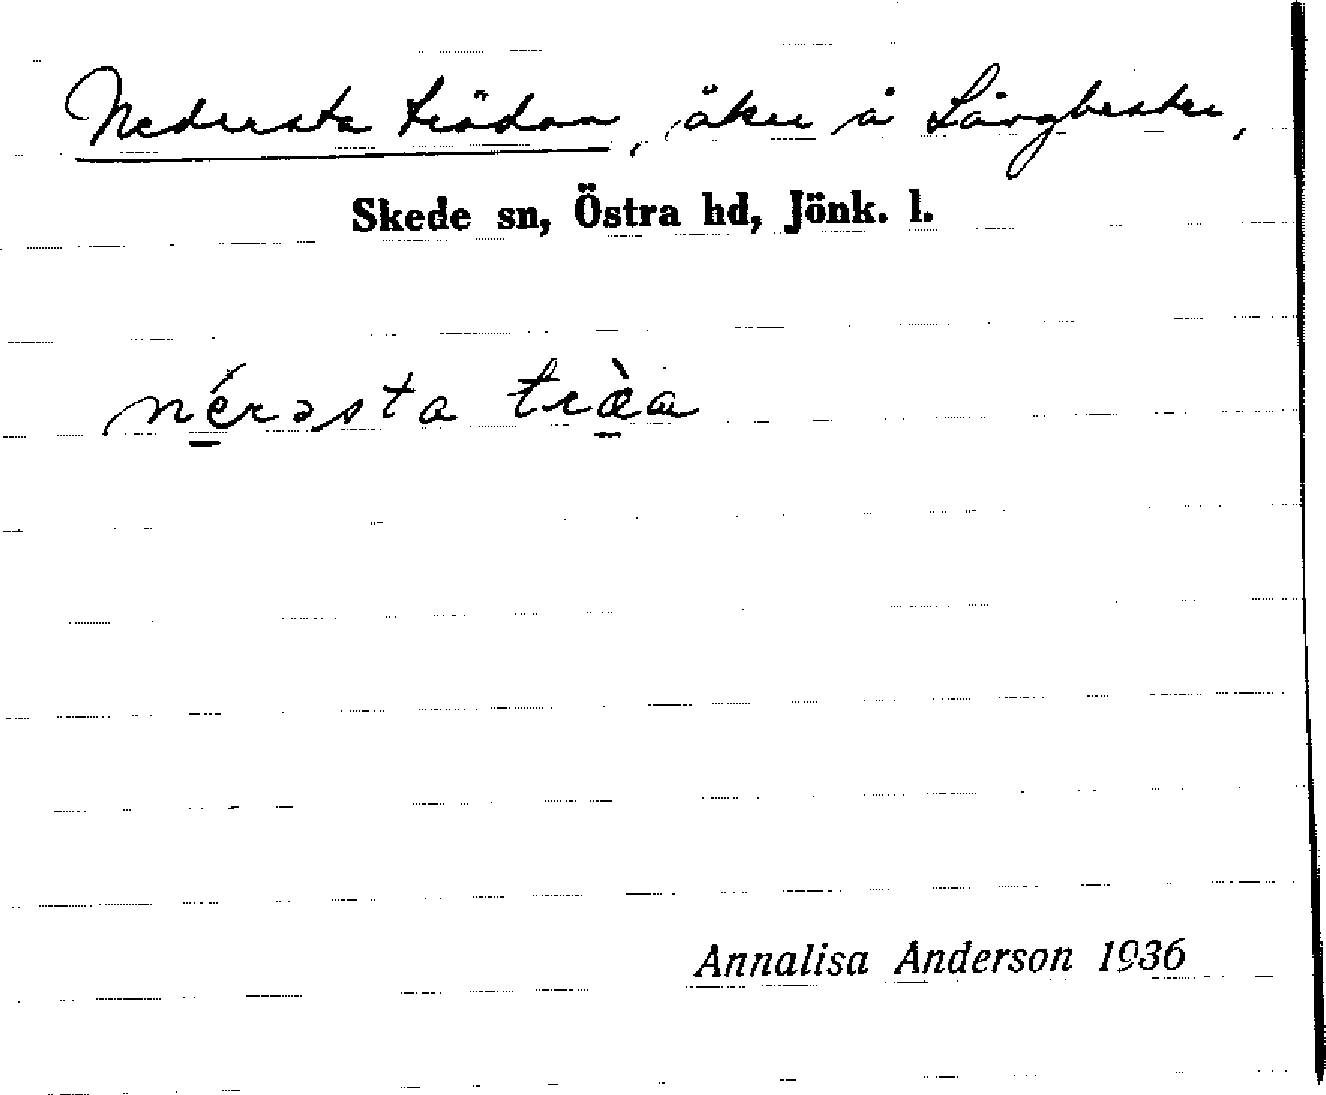 Nedersta trädan, åker å Långbesten,
Skede sn, Östra hd, Jönk. l.
nérəsta træ̀a
Annalisa Anderson 1936